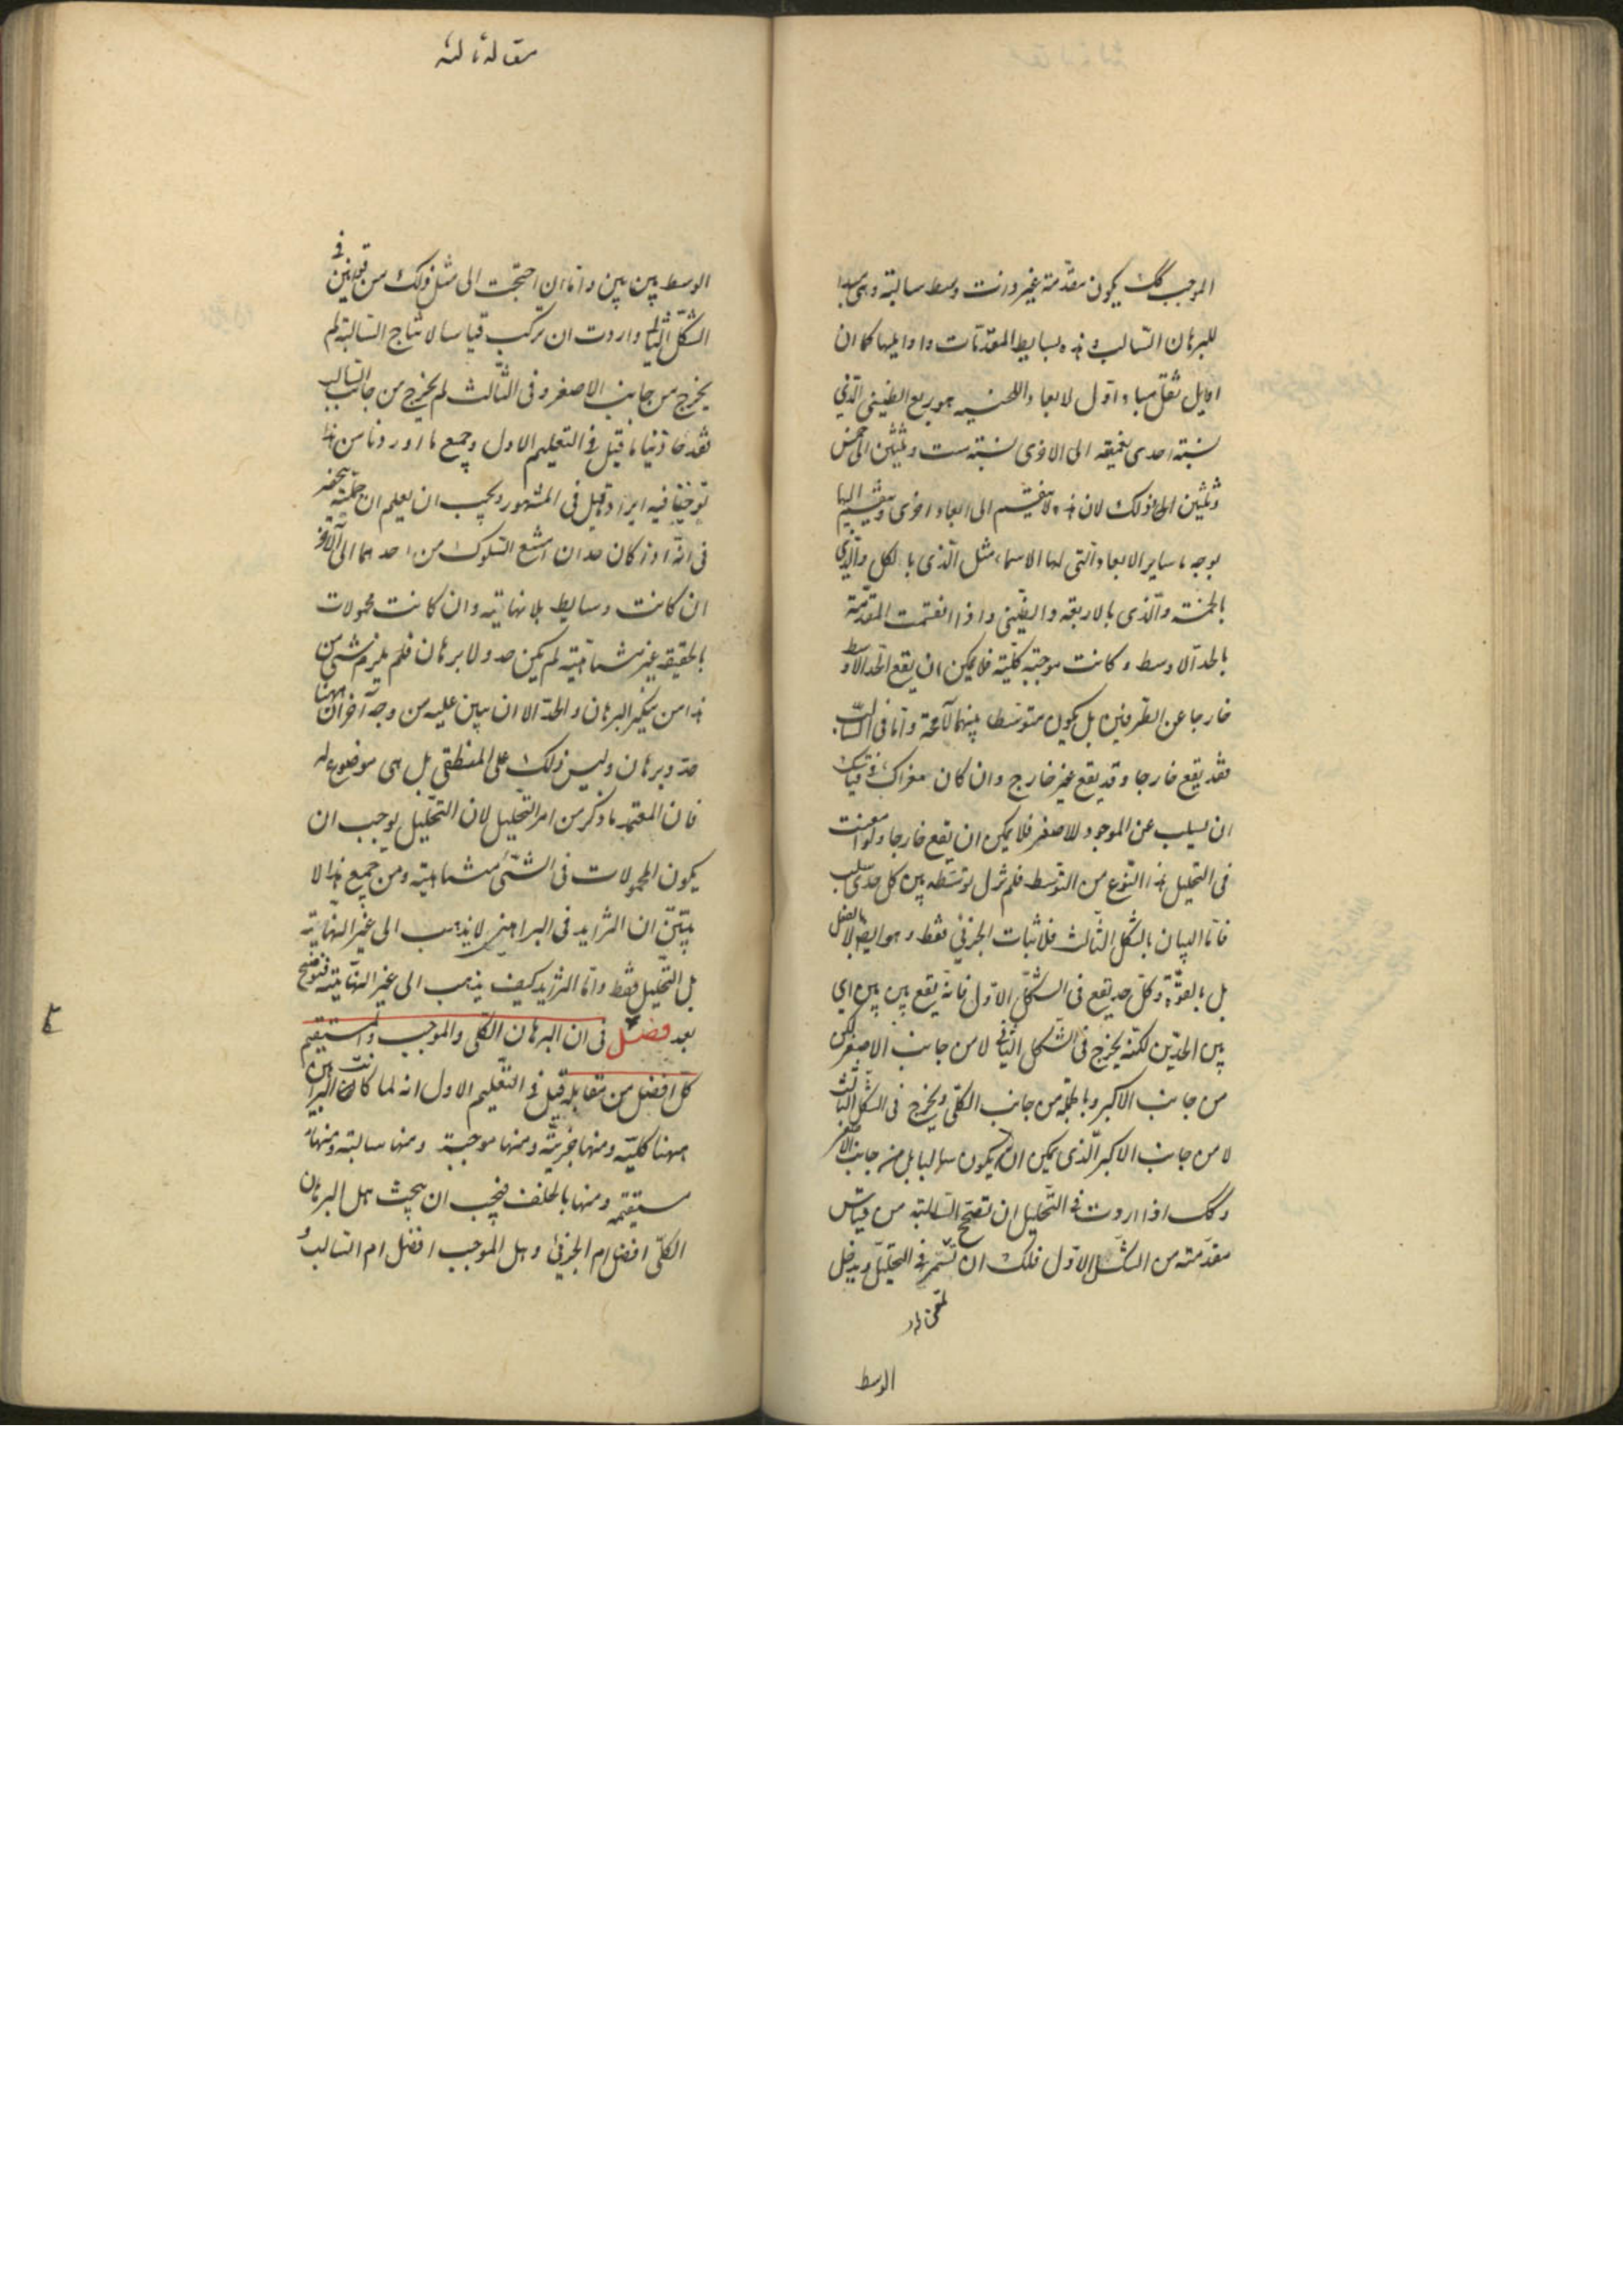 الموجب كك يكون مقدمة غير ذات وسط سالبة وهى مبدا
للبرهان السالب وهذه بسايط المقدمات واوايلها كما ان
اوايل ثقل مبادا واول لابعاد اللحنيه هو ربع الطنينى الذى
نسبته احدى نغميته الى الاخرى نسبة ست وثلثين الى خمس
وثلثين الى ذلك لان هذه لا تنقسم الى ابعاد اخرى وينقسم اليها
بوجه ما ساير الابعاد التى لها الاسماء مثل الذى بالكل والذى
بالخمسة والذى بالاربعة والطنينى واذا انقسمت المقدمة
بالحد الاوسط وكانت موجبة كلية فلا يمكن ان يقع الحد الاوسط
خارجا عن الطرفين بل يكون متوسطا بينهما لا محة واما فى السالب
فقد يقع خارجا وقد يقع غير خارج وان كان
ان يسلب عن الموجود للاصغر فلا يمكن ان يقع خارجا ولو امعنت
فى التحليل هذا النوع من التوسط فلم تزل توسطه بين كل حدى سلب
فاما البيان بالشكل الثالث فلاثبات الجزئى فقط وهو ايضا لا بالفعل
بل بالقوة وكل حد يقع فى الشكل الاول فانه يقع بين بين اى
بين الحدين لكنه يخرج فى الشكل الثانى لا من جانب الاصغر لكن
من جانب الاكبر وبالجملة من جانب الكلى ويخرج فى الشكل الثالث
لا من جانب الاكبر الذى يمكن ان يكون سالبا بل من جانب الاصغر
وكك اذا اردت فى التحليل ان تصحح السالبة من قياس
مقدمته من الشكل الاول فلك ان تستمر فى التحليل ويدخل
الوسط
مقاله ثالثه
الوسط بين بين واما ان احتجت الى مثل ذلك من قوانين فى
الشكل الثانى واردت ان تركب قياسا لانتاج السالبة لم
يخرج من جانب الاصغر وفى الثالث لم يخرج من جانب السالب
فقد حاذينا ما قيل فى التعليم الاول وجميع ما اوردنا من هذا
توخينا فيه ايراد ما قيل فى المشهور ويجب ان يعلم ان حجته
فى انه اذ كان حدان امتنع السلوك من احدهما الى الاخر
ان كانت وسايط بلا نهاية وان كانت محمولات
بالحقيقة غير متناهية لم يكن حد ولا برهان فلم يلزم شئ من
هذا من ينكر البرهان والحد الا ان يبين عليه من وجه آخر ان ههنا
حد وبرهان وليس ذلك على المنطقى بل هى موضوعه له
فان المعتمد ما ذكر من امر التحليل لان التحليل يوجب ان
يكون المحمولات فى الشئ متناهية ومن جميع هذا لا
يتبين ان التزايد فى البراهين لا يذهب الى غير النهاية
بل التحليل فقط واما التزايد كيف يذهب الى غير النهاية فنوضح
بعد فصل فى ان البرهان الكلى والموجب والمستقيم
كل افضل من مقابله قيل فى التعليم الاول انه لما كانت البراهين
ههنا كلية ومنها جزئية ومنها موجبة ومنها سالبة ومنها
مستقيمه ومنها بالخلف فيجب ان يبحث هل البرهان
الكلى افضل ام الجزئى وهل الموجب افضل ام السالب و